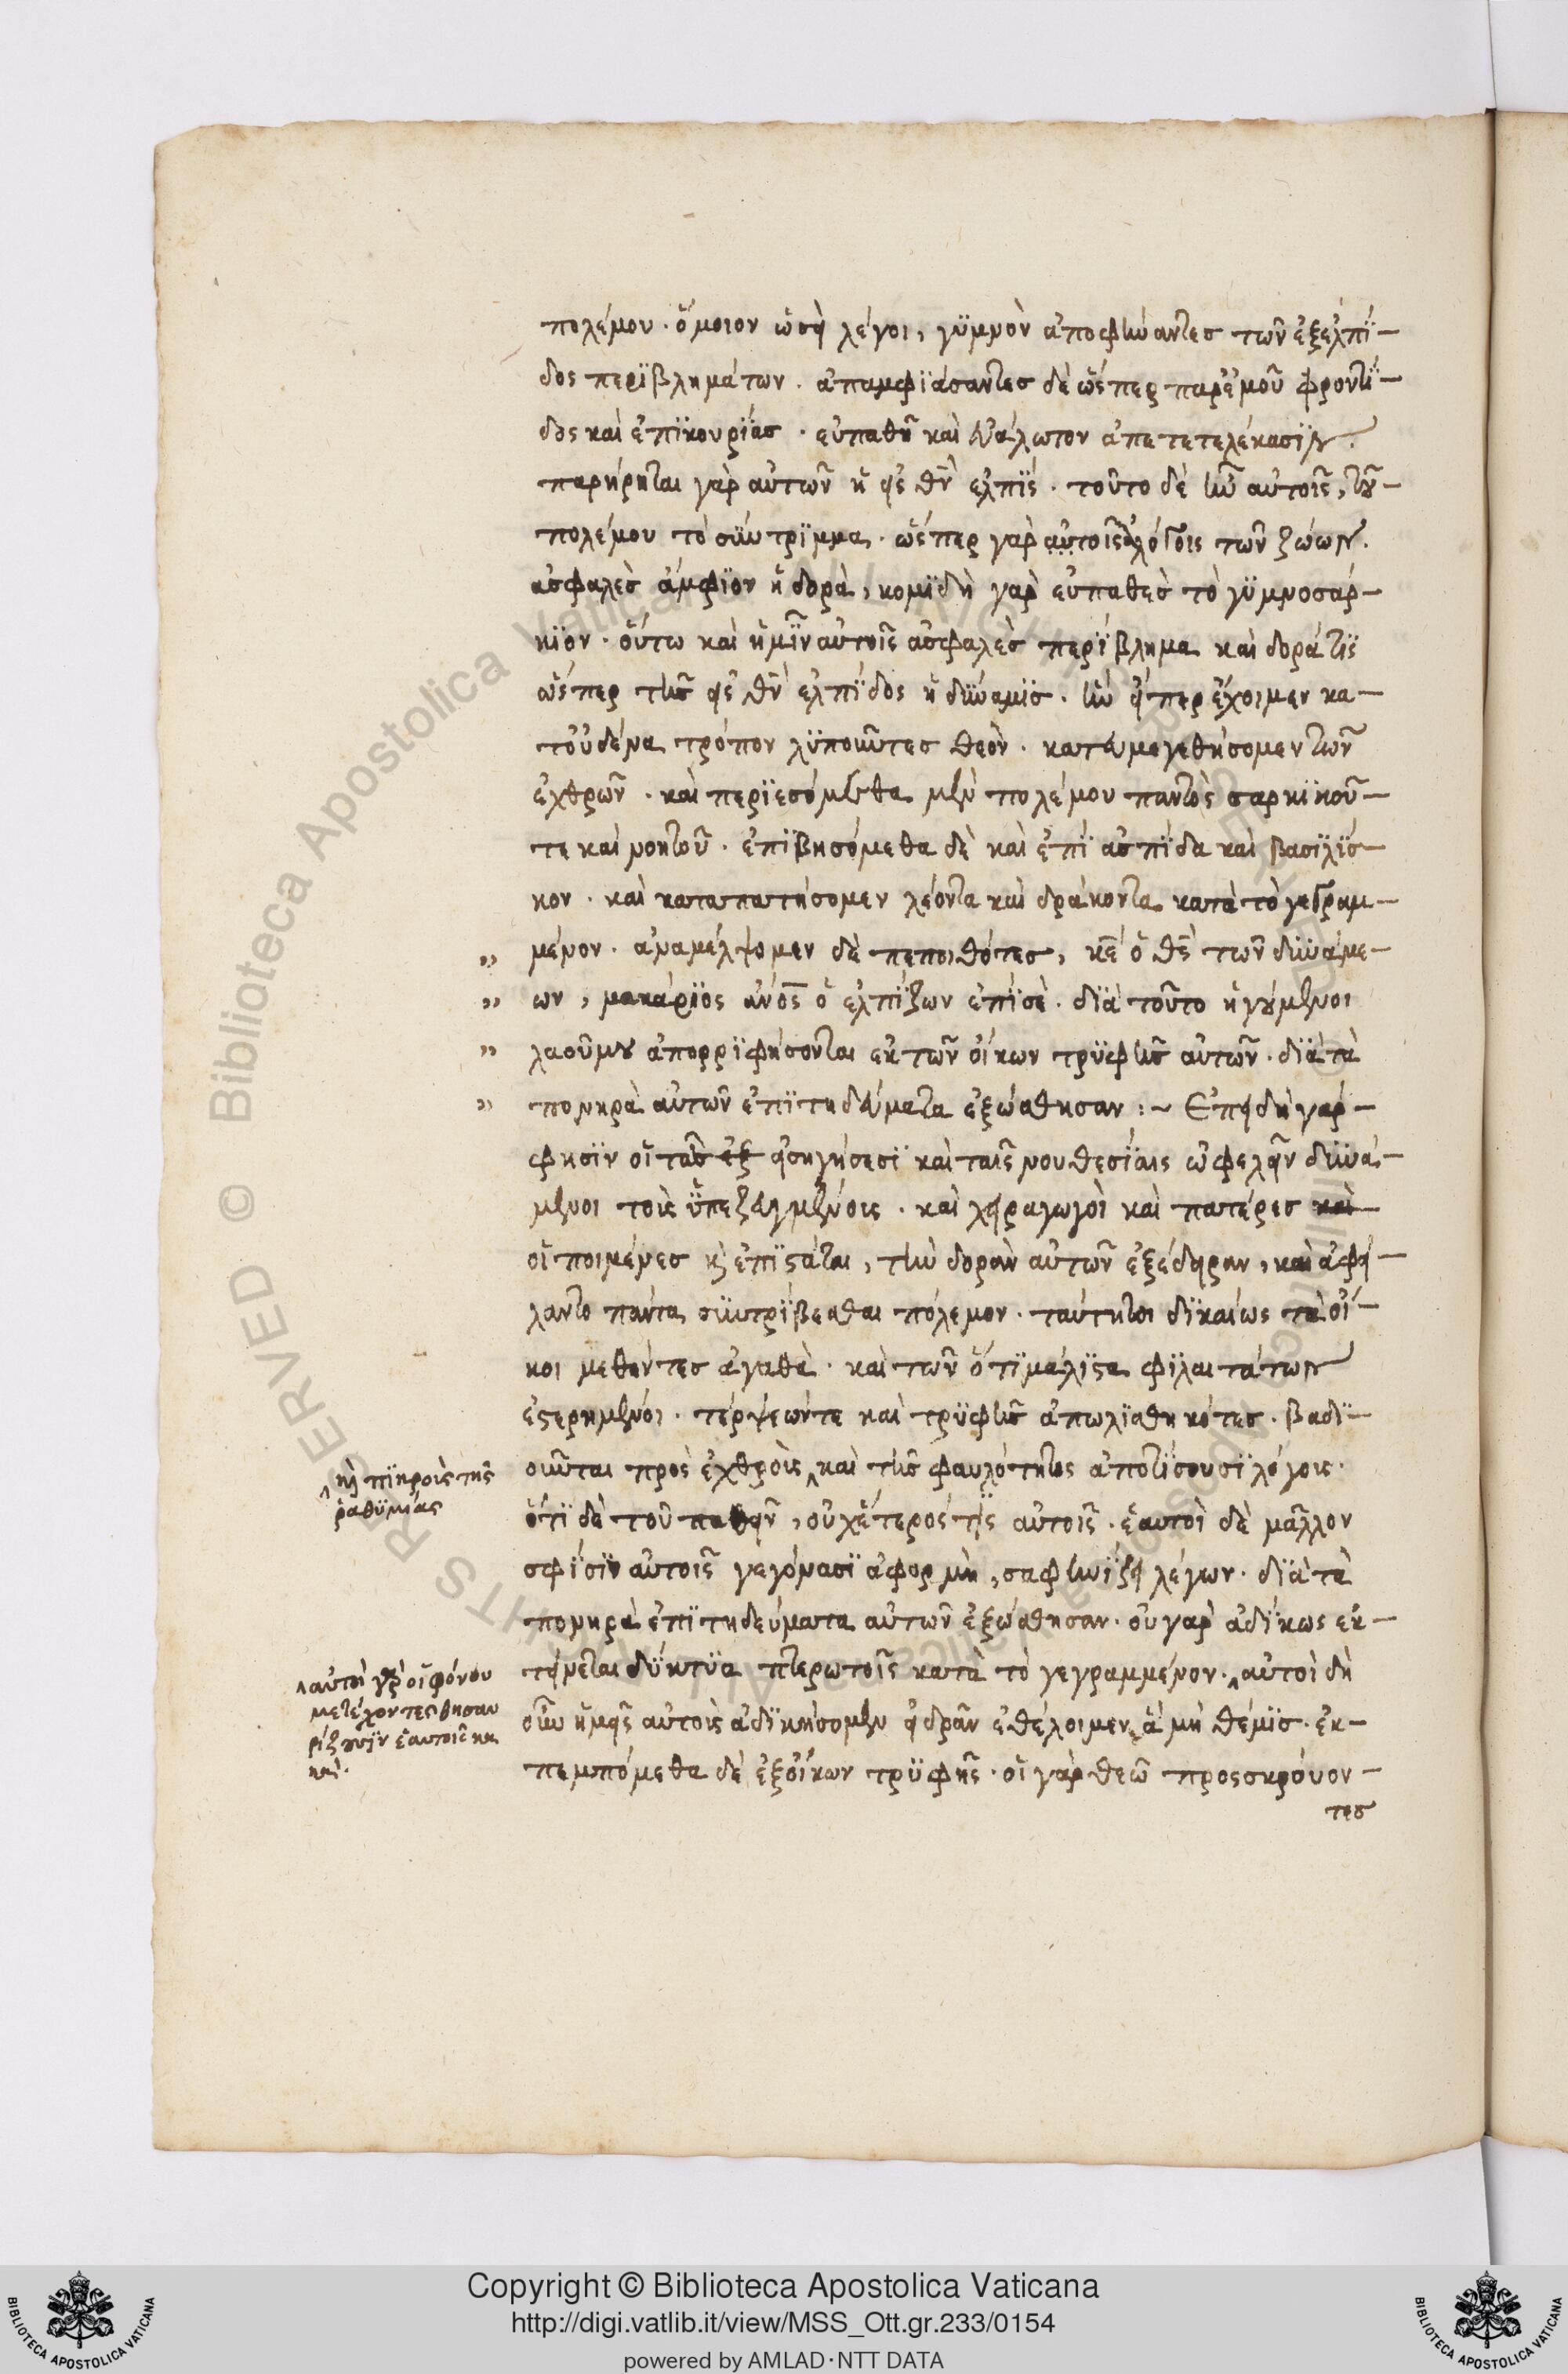 πολέμου. ὅμοιον ὡσεὶ λέγοι, γϋμνὸν ἀποφήναντες τῶν ἐξελπί-
δος περϊβλημάτων. ἀπαμφϊάσαντες δὲ ὥσπερ παρἐμοῦ φροντί-
δος καὶ ἐπϊκουρίας. εὐπαθῆ καὶ εὐάλωτον ἀπετετελέκασϊν.
παρήρηται γὰρ αὐτῶν ἡ εἰς θν̄ ἐλπίς. τοῦτο δὲ ἦν αὐτοῖς, τοῦ
πολέμου τὸ σύντρϊμμα. ὥσπερ γὰρ αὐτοῖς ἀλόγοις τῶν ζώων.
ἀσφαλὲς ἄμφϊον ἡ δορὰ, κομϊδὴ γὰρ εὐπαθὲς τὸ γϋμνοσάρ-
κϊον. οὕτω καὶ ἡμῖν αὐτοῖς ἀσφαλὲς περίβλημα καὶ δορά τϊς
ὥσπερ τῆς εἰς θν̄ ἐλπίδος ἡ δύναμϊς. ἣν εἴπερ ἔχοιμεν κα-
τοὐδένα τρόπον λϋποῦντες θεὸν. κατευμεγεθήσομεν τῶν
ἐχθρῶν. καὶ περϊεσόμεθα μὲν πολέμου παντὸς σαρκϊκοῦ
τε καὶ νοητοῦ. ἐπϊβησόμεθα δὲ καὶ ἐπὶ ἀσπίδα καὶ βασϊλίσ-
κον. καὶ καταπατήσομεν λέοντα καὶ δράκοντα κατὰ τὸ γεγραμ-
μένον. ἀναμέλψομεν δὲ πεποιθότες, κε̄ ὁ θς̄ τῶν δϋνάμε-
ων, μακάρϊος ἄνος̄ ὁ ἐλπίζων ἐπὶ σὲ. δϊὰ τοῦτο ἡγούμενοι
λαοῦ μου ἀπορρϊφήσονται ἐκ τῶν οἴκων τρϋφῆς αὐτῶν. δϊὰ τὰ
πονηρὰ αὐτῶν ἐπϊτηδεύματα ἐξώσθησαν :~ Ἐπειδὴ γὰρ
φησὶν οἱ ταῖς ἐξ εἰσηγήσεσϊ καὶ ταῖς νουθεσίαις ὠφελεῖν δϋνά-
μενοι τοῖς ὑπεζευγμένοις. καὶ χειραγωγοὶ καὶ πατέρες καὶ
οἱ ποιμένες κ̀ ἐπϊστάται, τὴν δορὰν αὐτῶν ἐξέδειραν, καὶ ἀφεί-
λαντο πάντα συντρίβεσθαι πόλεμον. ταύτητοι δϊκαίως τὰ οἴ-
κοι μεθέντες ἀγαθὰ. καὶ τῶν ὅτϊ μάλϊστα φϊλαιτάτων
ἐστερημένοι. τέρψεών τε καὶ τρϋφῆς ἀπωλϊσθηκότες. βαδϊ-
οῦνται πρὸς ἐχθροῖς ‸ καὶ τῆς φαυλότητος ἀποτίσουσϊ λόγοις.
ὅτι δὲ τοῦ παθεῖν, οὐχ ἕτερός τϊς αὐτοῖς. ἑαυτοὶ δὲ μᾶλλον
σφίσϊν αὐτοῖς γεγόνασϊ ἀφορμὴ, σαφηνίζει λέγων. δϊὰ τὰ
πονηρὰ ἐπϊτηδεύματα αὐτῶν ἐξώσθησαν. οὐ γὰρ ἀδίκως ἐκ-
τείνεται δίκτϋα πτερωτοῖς κατὰ τὸ γεγραμμένον. ‸ αὐτοὶ δὴ
οὖν ἡμᾶς αὐτοὺς ἀδϊκήσομεν εἰ δρᾶν ἐθέλοιμεν, ἃ μὴ θέμϊς. ἐκ-
πεμπόμεθα δὲ ἐξοίκων τρϋφῆς. οἱ γὰρ θεῶ προςσκρόυον-
τες
‸ κ̀ πϊκροῖς τῆς
ῥαθϋμίας
‸ αὐτοὶ γὰρ οἱ φόνου
μετέχοντες θησαυ
ρίζουσϊν ἑαυτοῖς κα
κὰ.
Copyright © Biblioteca Apostolica Vaticana
http://digi.vatlib.it/view/MSS_Ott.gr.233/0154
powered by AMLAD·NTT DATA
BIBLIOTECA APOSTOLICA VATICANA
BIBLIOTECA APOSTOLICA VATICANA